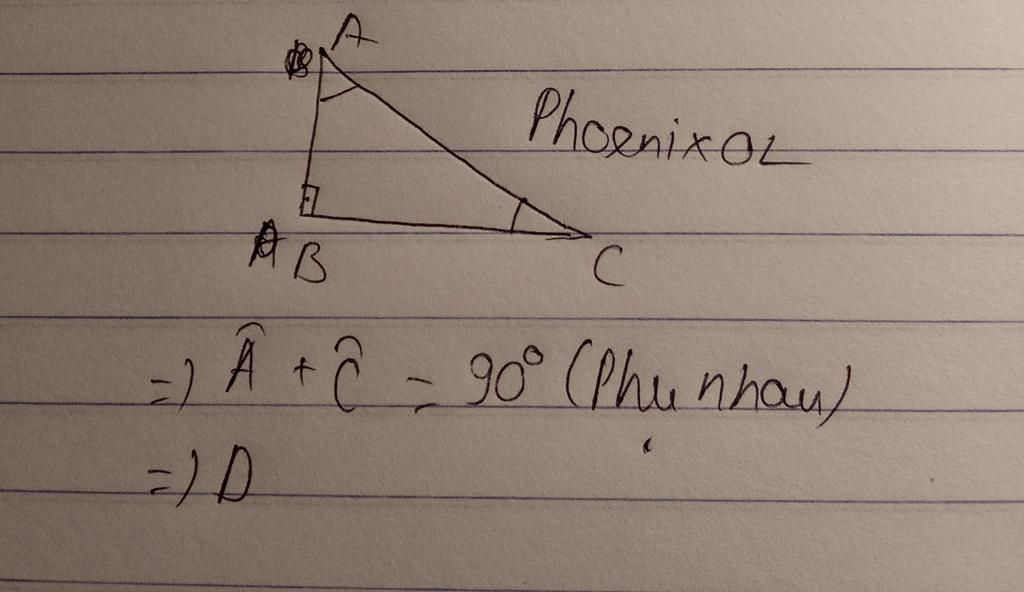 A
PhoenixOL
B
C
=) Â + Ĉ = 90° (Phụ nhau)
=) D